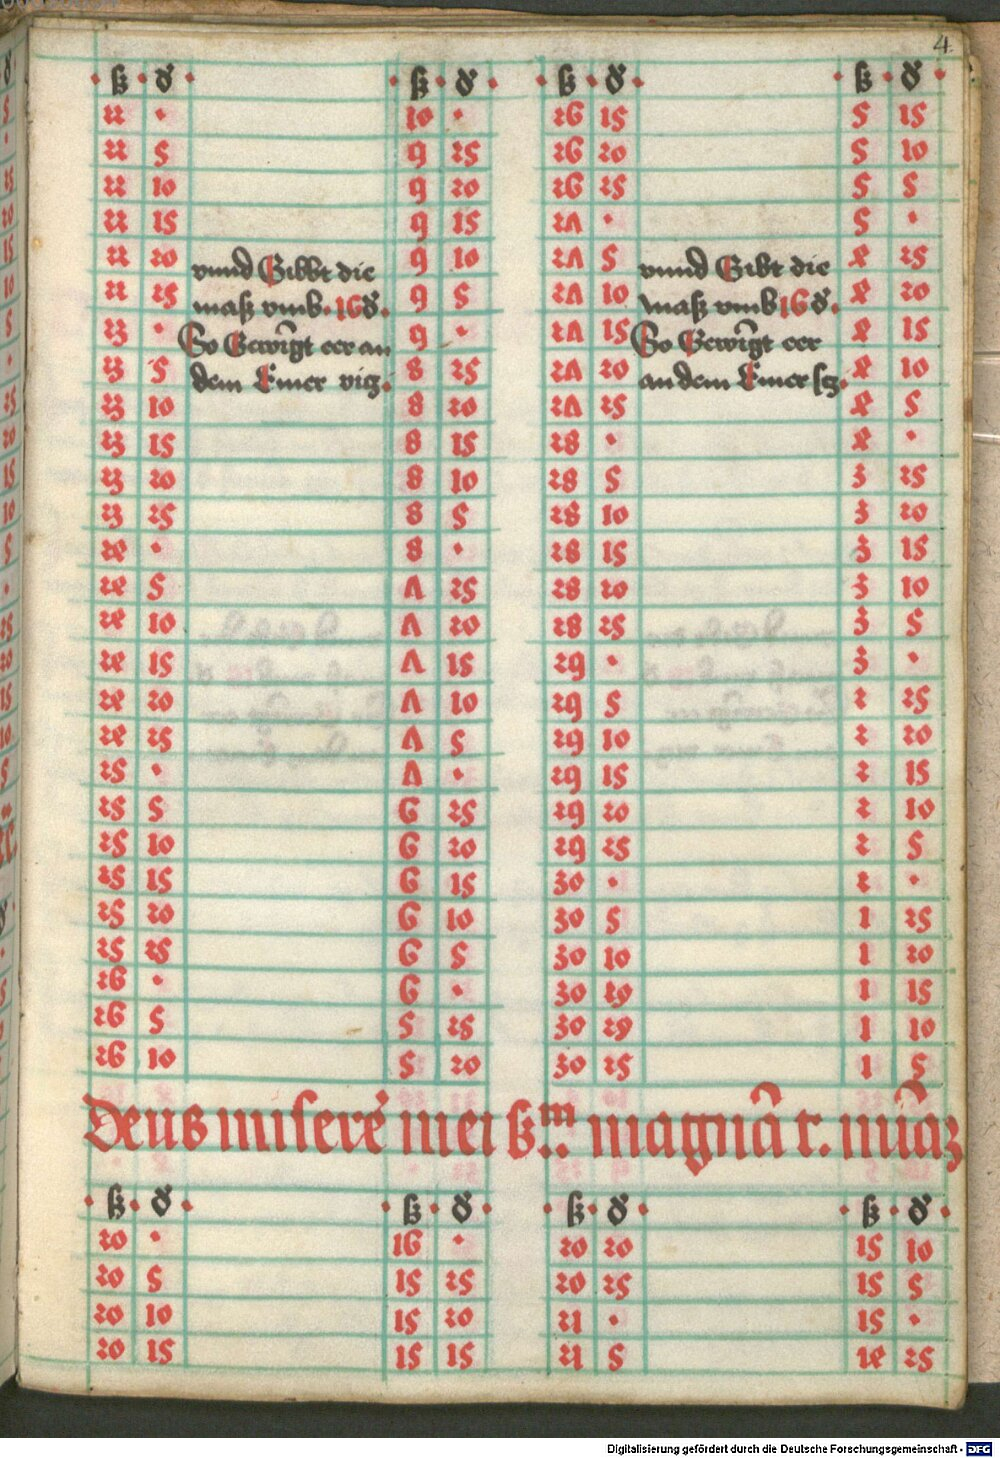 · ß · δ · · ß · δ · · ß · δ · · ß · δ ·
4
22 · 10 · 26 15 5 15
22 5 9 25 26 20 5 10
22 10 9 20 26 25 5 5
22 15 9 15 27 · 5 ·
22 20 vnnd Gibbt die 9 10 27 5 vnnd Gibt die 4 25
22 25 maß vmb · 16 δ · 9 5 27 10 maß vmb 16 δ · 4 20
23 · So Gewingt eer an 9 · 27 15 So Gewingt eer 4 15
23 5 dem Emer 8 25 27 20 an dem Emer 4 10
23 10 8 20 27 25 4 5
23 15 8 15 28 · 4 ·
23 20 8 10 28 5 3 25
23 25 8 5 28 10 3 20
24 · 8 · 28 15 3 15
24 5 7 25 28 20 3 10
24 10 7 20 28 25 3 5
24 15 7 15 29 · 3 ·
24 20 7 10 29 5 2 25
24 25 7 5 29 10 2 20
25 · 7 · 29 15 2 15
25 5 6 25 29 20 2 10
25 10 6 20 29 25 2 5
25 15 6 15 30 · 2 ·
25 20 6 10 30 5 1 25
25 25 6 5 30 10 1 20
26 · 6 · 30 19 1 15
26 5 5 25 30 29 1 10
26 10 5 20 30 25 1 5
Deus miseré mei ẞᵐ. magnā τ. mīāz
· ß · δ · · ß · δ · · ß · δ · · ß · δ ·
20 · 16 · 20 20 15 10
20 5 15 25 20 25 15 5
20 10 15 20 21 · 15 ·
20 15 15 15 21 5 14 25
Digitalisierung gefördert durch die Deutsche Forschungsgemeinschaft - DFG